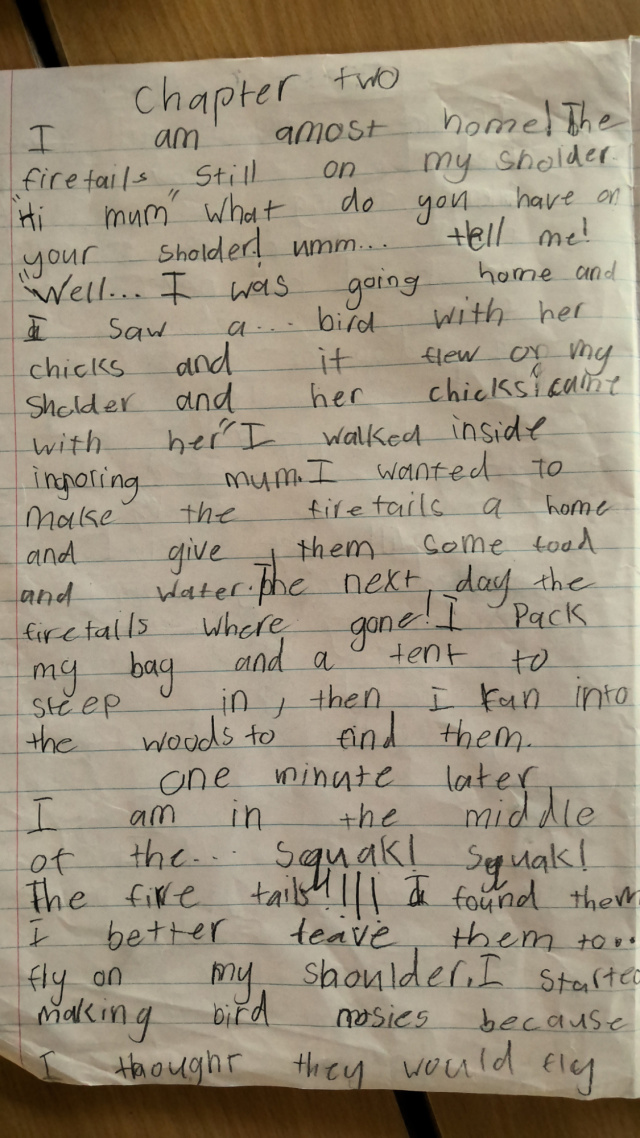 Chapter two
I am amost home! The
firetails still on my sholder.
"Hi mum" what do you have on
your sholder! umm... tell me!
"Well... I was going home and
I saw a... bird with her
chicks and it flew on my
sholder and her chicks came
with her" I walked inside
ingnoring mum. I wanted to
make the firetails a home
and give them some food
and water. The next day the
firetails where gone! I pack
my bag and a tent to
sleep in, then I run into
the woods to find them.
one minute later
I am in the middle
of the... Squak! Squak!
The fire tails!!!!! I found them
I better leave them to...
fly on my shoulder. I started
making bird nosies because
I thought they would fly